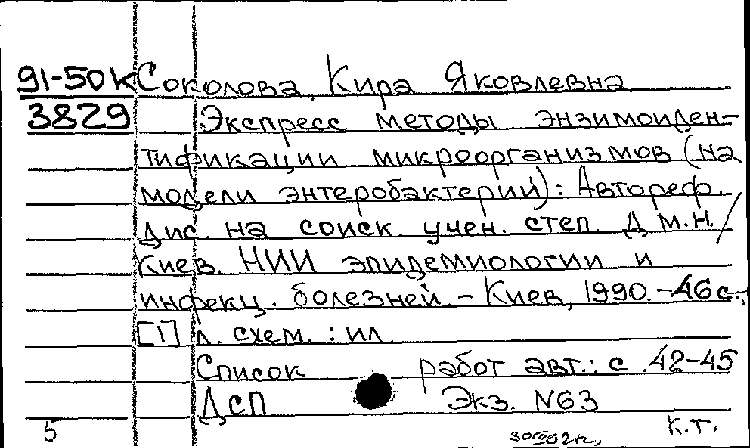 91-50к Соколова, Кира Яковлевна
3829 Экспресс методы энзимоиден-
тификации микроорганизмов (на
модели энтеробактерий): Автореф.
дис. на соиск. учен. степ. д.м.н./
Киев. НИИ эпидемиологии и
инфекц. болезней. - Киев, 1990. - 46с.,
[1] л. схем. : ил
Список работ авт.: с. 42-45
ДСП Экз. N63
5 к.т.